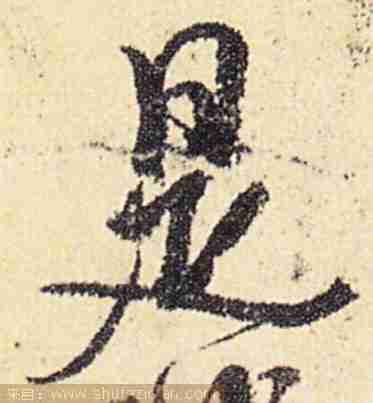 是
来自：www.shufazidian.com